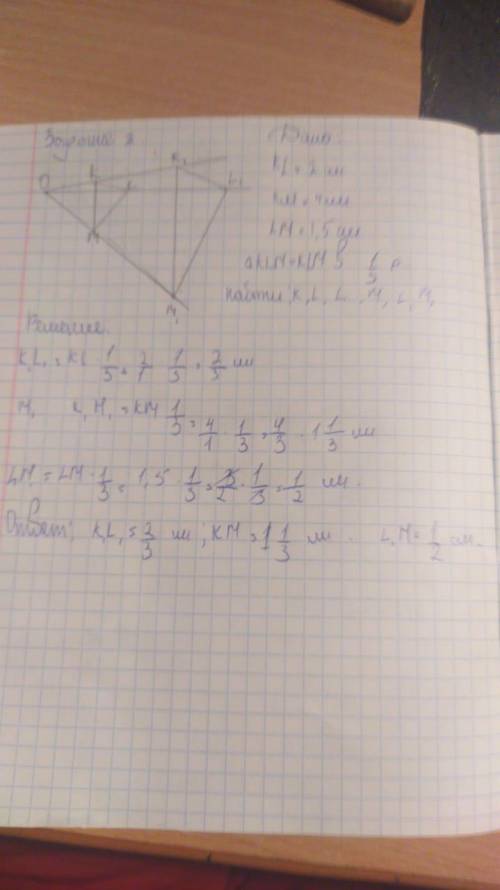 Задача 2
Дано:
KL = 2 см
KM = 4 см
LM = 1,5 см
O
L
K₁
L₁
M
M₁
1/3
найти: K₁L₁, M₁, L₁M₁
Решение.
K₁L₁ = KL · 1/3 = 2/1 · 1/3 = 2/3 см
M₁ K₁M₁ = KM 1/3 = 4/1 · 1/3 = 4/3 · 1 1/3 см
LM = LM · 1/3 = 1,5 · 1/3 = 3/2 · 1/3 = 1/2 см.
Ответ; K₁L₁ = 2/3 см; KM = 1 1/3 см. L₁M = 1/2 см.